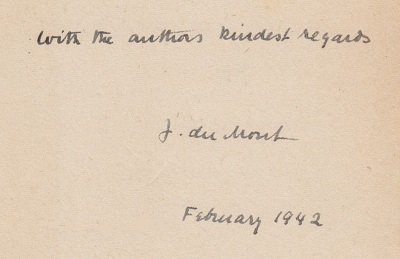 with the authors kindest regards
J. du Mont
February 1942